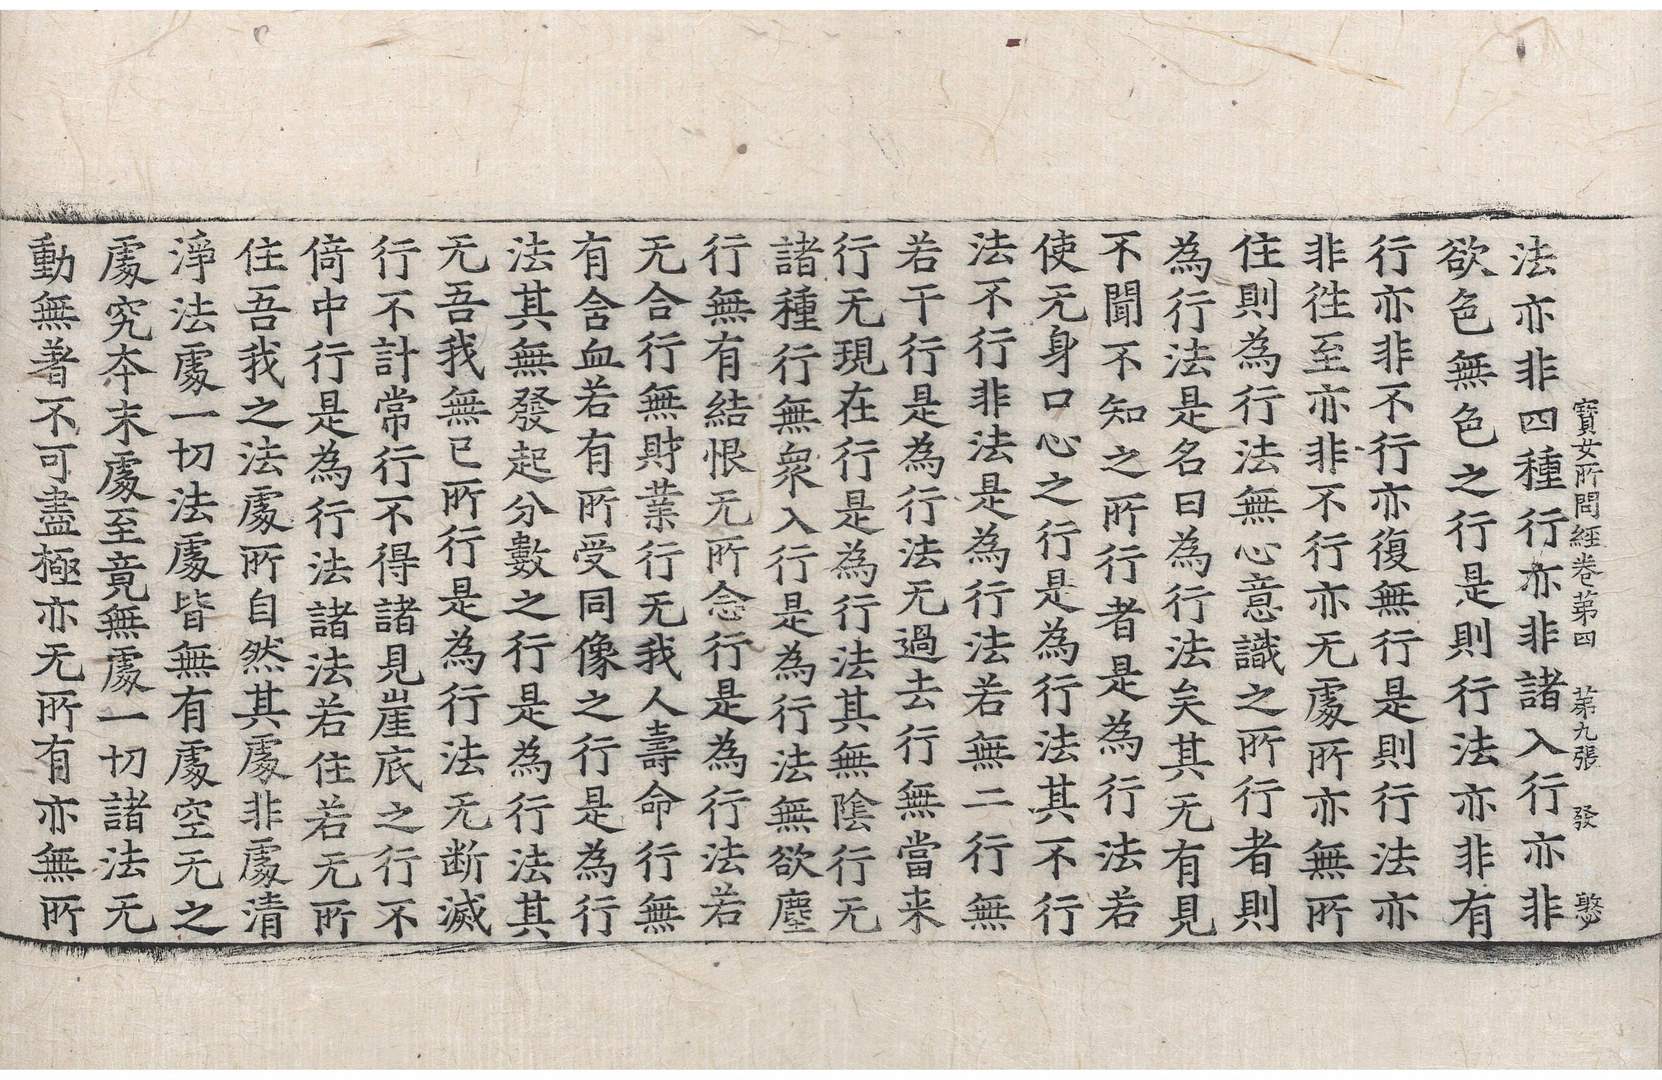 寶女所問經卷第四　第九張　發　憨
法亦非四種行亦非諸入行亦非
欲色無色之行是則行法亦非有
行亦非不行亦復無行是則行法亦
非徃至亦非不行亦无處所亦無所
住則為行法無心意識之所行者則
為行法是名曰為行法矣其无有見
不聞不知之所行者是為行法若
使无身口心之行是為行法其不行
法不行非法是為行法若無二行無
若干行是為行法无過去行無當来
行无現在行是為行法其無陰行无
諸種行無衆入行是為行法無欲塵
行無有結恨无所念行是為行法若
无合行無財業行无我人壽命行無
有含血若有所受同像之行是為行
法其無發起分數之行是為行法其
无吾我無已所行是為行法无断滅
行不計常行不得諸見崖底之行不
倚中行是為行法諸法若住若无所
住吾我之法處所自然其處非處清
淨法處一切法處皆無有處空无之
處究夲末處至竟無處一切諸法无
動無著不可盡極亦无所有亦無所